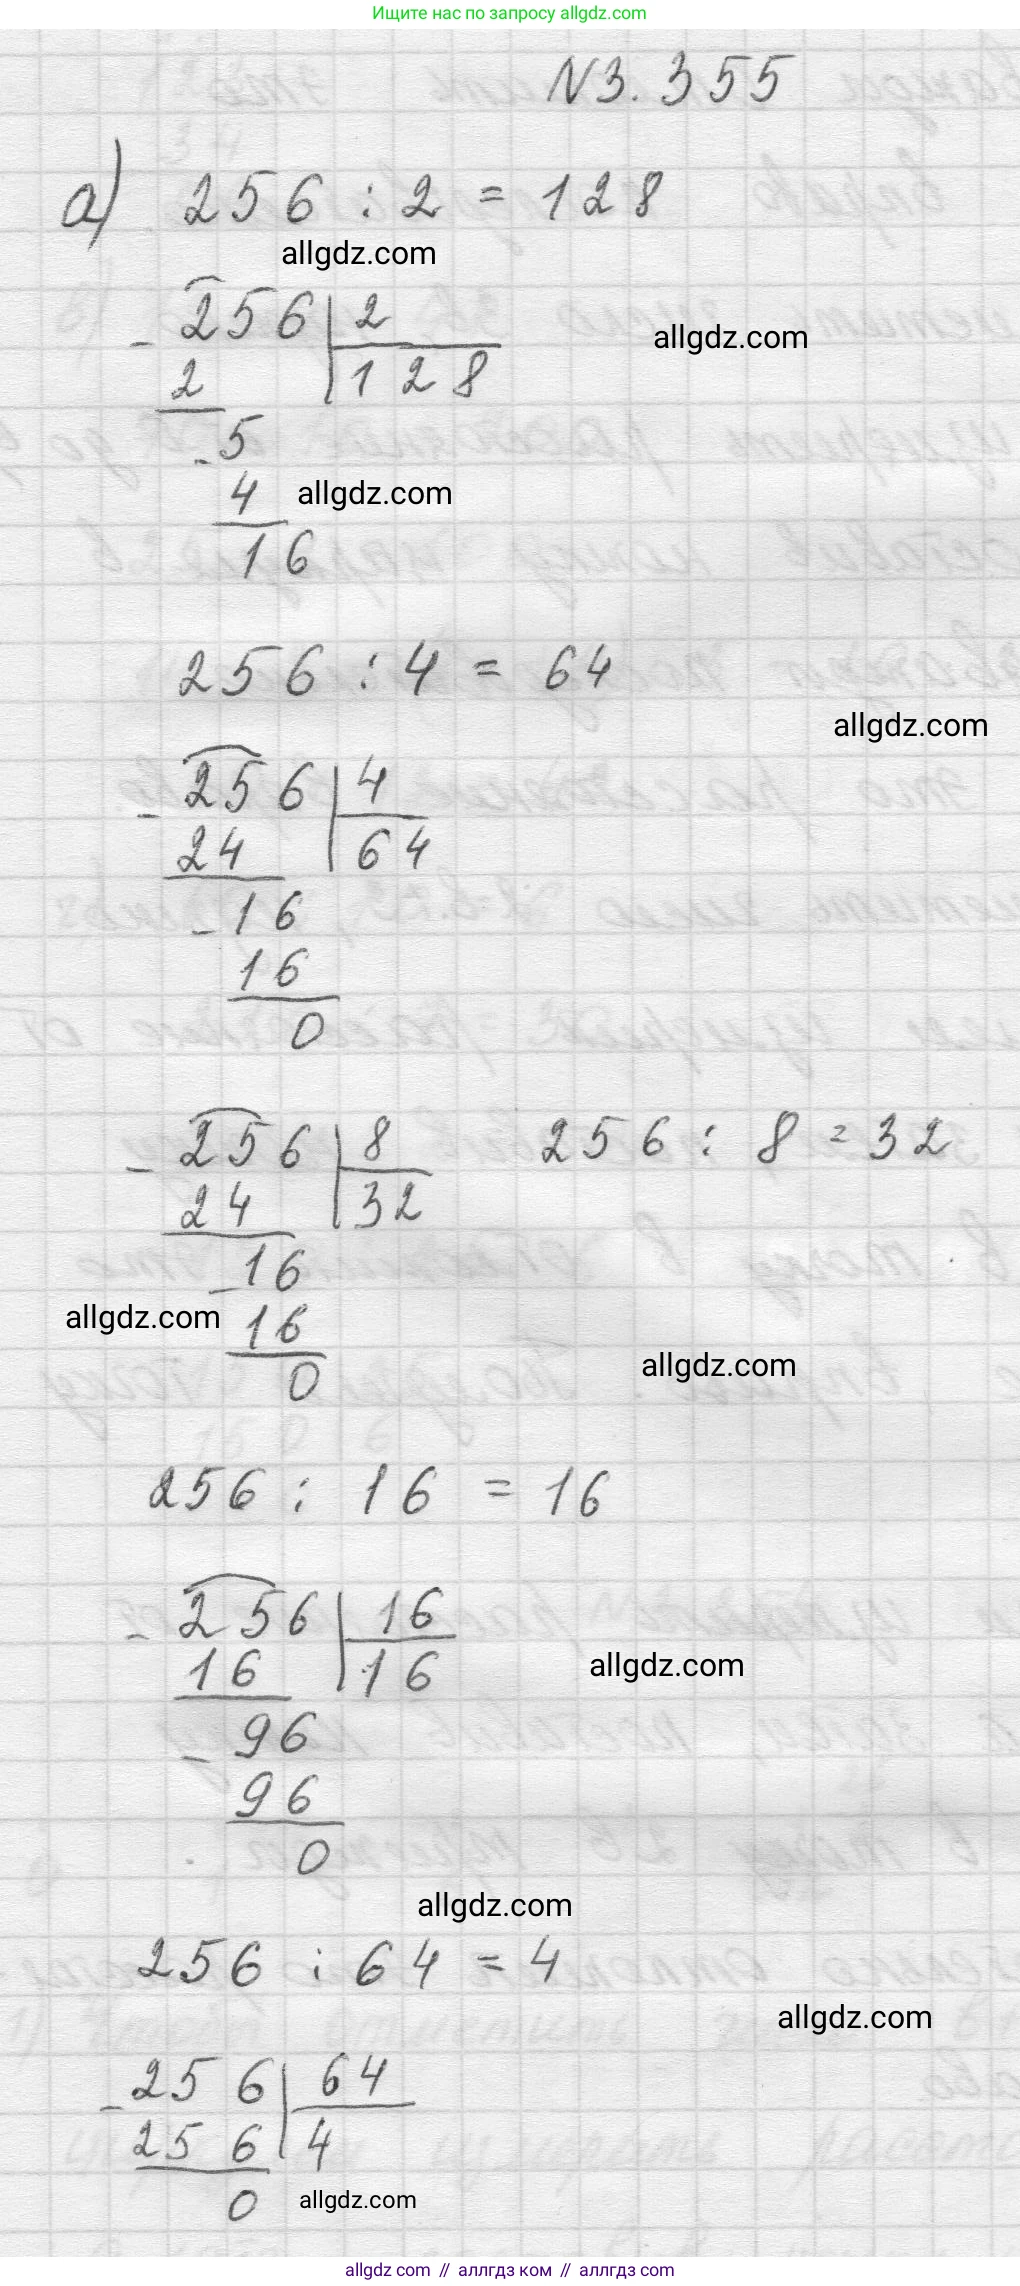 Ищите нас по запросу allgdz.com
N3.355
а) 256 : 2 = 128
allgdz.com
- 256 | 2
allgdz.com
2 | 128
- 5
4
allgdz.com
16
256 : 4 = 64
allgdz.com
- 256 | 4
24 | 64
- 16
16
0
- 256 | 8 256 : 8 = 32
24 | 32
- 16
allgdz.com
16
0
allgdz.com
256 : 16 = 16
- 256 | 16
16 | 16
allgdz.com
- 96
96
0
allgdz.com
256 : 64 = 4
allgdz.com
- 256 | 64
256 | 4
0
allgdz.com
allgdz.com // аллгдз ком // аллгдз.com